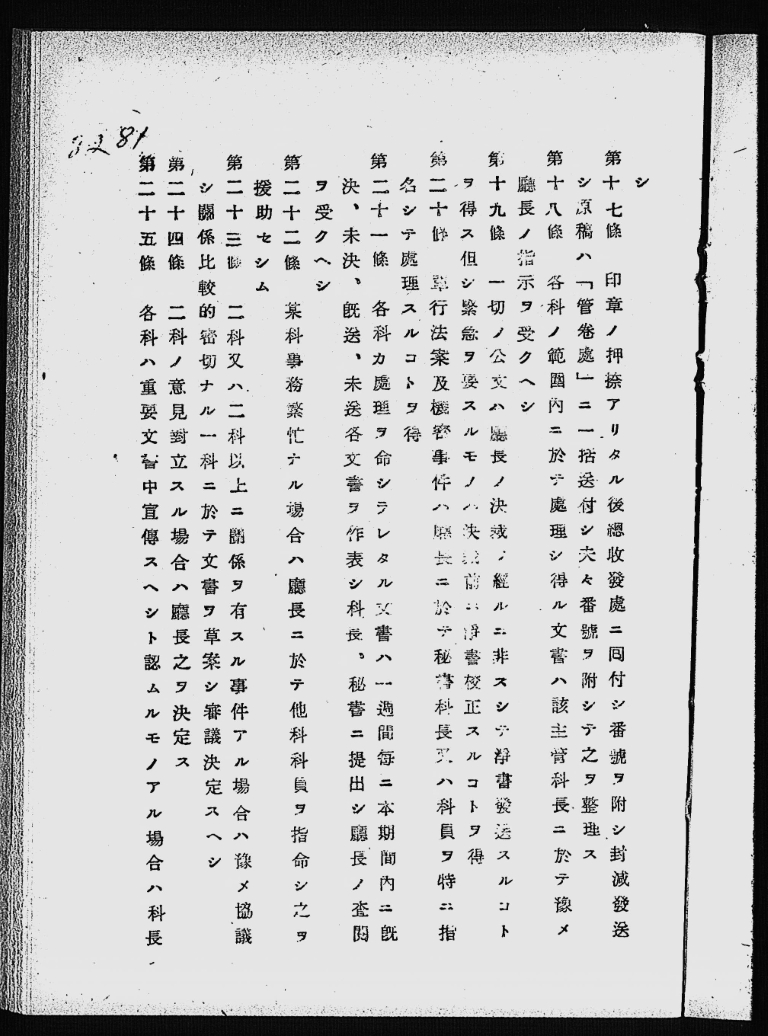 3281
シ
第十七條　印章ノ押捺アリタル後總收發處ニ囘付シ番號ヲ附シ封減發送
シ原稿ハ「管卷處」ニ一括送付シ夫々番號ヲ附シテ之ヲ整理ス
第十八條　各科ノ範圍内ニ於テ處理シ得ル文書ハ該主管科長ニ於テ豫メ
廳長ノ指示ヲ受クヘシ
第十九條　一切ノ公文ハ廳長ノ決裁ノ經ルニ非スシテ淨書發送スルコト
ヲ得ス但シ緊急ヲ要スルモノハ決裁前ニ淨書校正スルコトヲ得
第二十條　單行法案及機密事件ハ廳長ニ於テ秘書科長又ハ科員ヲ特ニ指
名シテ處理スルコトヲ得
第二十一條　各科カ處理ヲ命シラレタル文書ハ一週間毎ニ本期間内ニ既
決、未決、既送、未送各文書ヲ作表シ科長、秘書ニ提出シ廳長ノ査閲
ヲ受クヘシ
第二十二條　某科事務繁忙ナル場合ハ廳長ニ於テ他科科員ヲ指命シ之ヲ
援助セシム
第二十三條　二科又ハ二科以上ニ關係ヲ有スル事件アル場合ハ豫メ協議
シ關係比較的密切ナル一科ニ於テ文書ヲ草案シ審議決定スヘシ
第二十四條　二科ノ意見對立スル場合ハ廳長之ヲ決定ス
第二十五條　各科ハ重要文書中宣傳スヘシト認ムルモノアル場合ハ科長